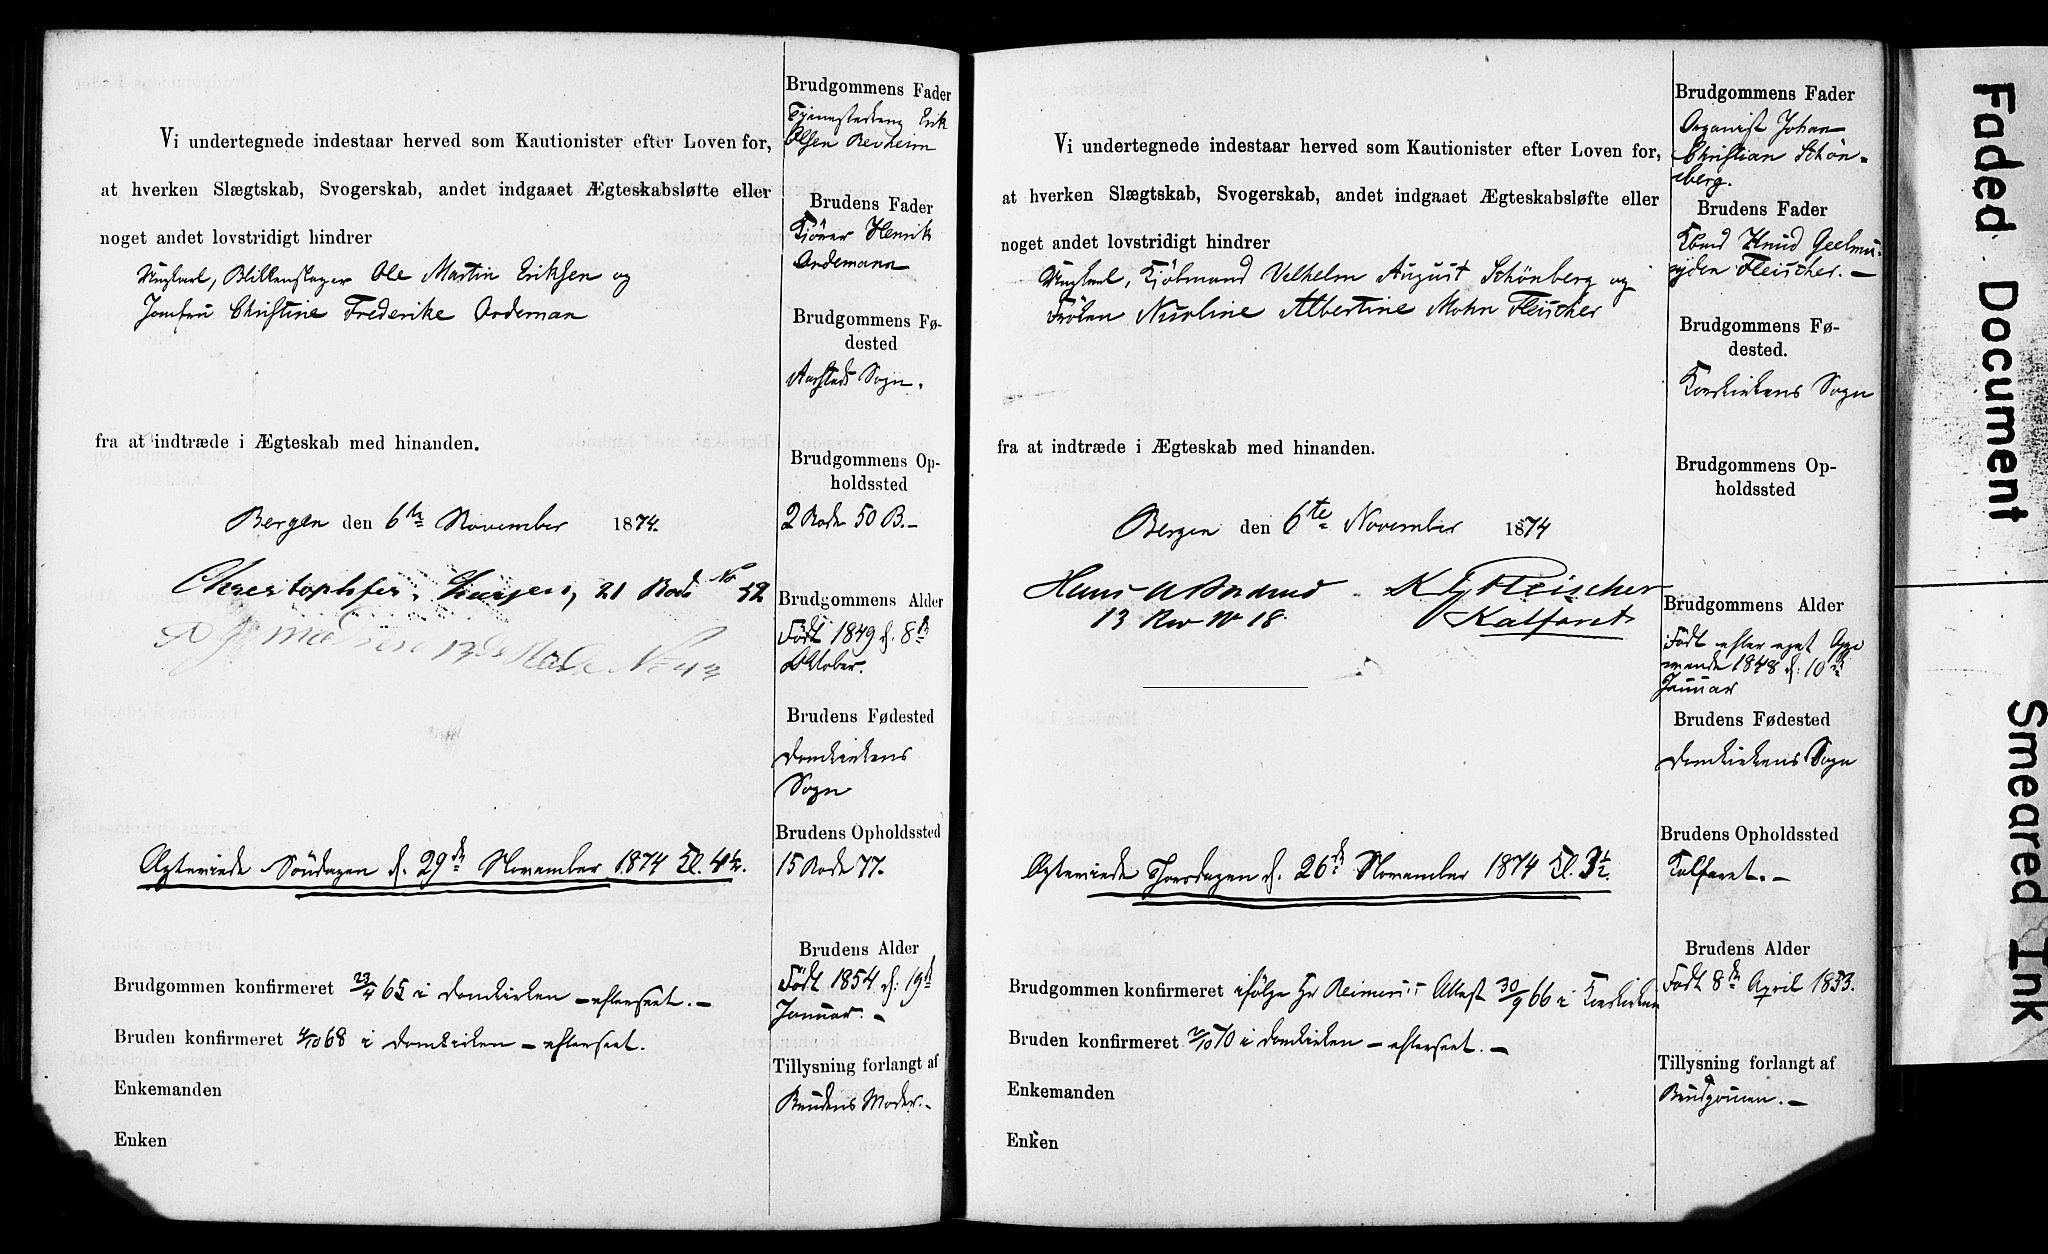 Vi undertegnede indestaar herved som Kautionister efter Loven for,
at hverken Slægtskab, Svogerskab, andet indgaaet Ægteskabsløfte eller
noget andet lovstridigt hindrer
Ungkarl, Blikkenslager Ole Martin Eriksen og
Jomfru Christine Frederike Ordeman
fra at indtræde i Ægteskab med hinanden.
Bergen den 6te November 1874.
21 Rode No 52
13de Rode No 43
Agtevirede Söndagen d. 29de November 1874 Kl. 4½.
Brudgommen konfirmeret 23/4 65 i Domkirken – efterseet. –
Bruden konfirmeret 4/10 68 i Domkirken – efterseet.
Enkemanden
Enken
Brudgommens Fader
Erik
Olsen Revheim
Brudens Fader
Henrik
Ordemann
Brudgommens Fø-
dested
Aarstads Sogn.
Brudgommens Op-
holdssted
2 Rode 50 B. –
Brudgommens Alder
Födt 1849 d. 8de
Oktober.
Brudens Fødested
Domkirkens
Sogn
Brudens Opholdssted
15 Rode 77.
Brudens Alder
Födt 1854 d. 19de
Januar. –
Tillysning forlangt af
Brudens Moder. –
Vi undertegnede indestaar herved som Kautionister efter Loven for,
at hverken Slægtskab, Svogerskab, andet indgaaet Ægteskabsløfte eller
noget andet lovstridigt hindrer
Ungkarl, Kjøbmand Vilhelm August Schönberg og
Frøken Nicoline Albertine Mohn Fleischer
fra at indtræde i Ægteskab med hinanden.
Bergen den 6te November 1874
Hans K G Fleischer
13 No 18. Kalfaret
Agtevirede Torsdagen d. 26de November 1874 Kl. 3½.
Brudgommen konfirmeret ifølge Hr Reimers's Attest 30/9 66 i Korskirken
Bruden konfirmeret 2/10 70 i Domkirken – efterseet. –
Enkemanden
Enken
Brudgommens Fader
Organist Johan
Christian Schön-
berg.
Brudens Fader
Knud Geelmu-
yden Fleischer. –
Brudgommens Fø-
dested.
Korskirkens Sogn
Brudgommens Op-
holdssted
Brudgommens Alder
Födt efter eget Opgi
vende 1848 d. 10de
Januar
Brudens Fødested
Domkirkens Sogn
Brudens Opholdssted
Kalfaret. –
Brudens Alder
Födt 8de April 1853.
Tillysning forlangt af
Brudgommen. –
Faded Document
Smeared Ink